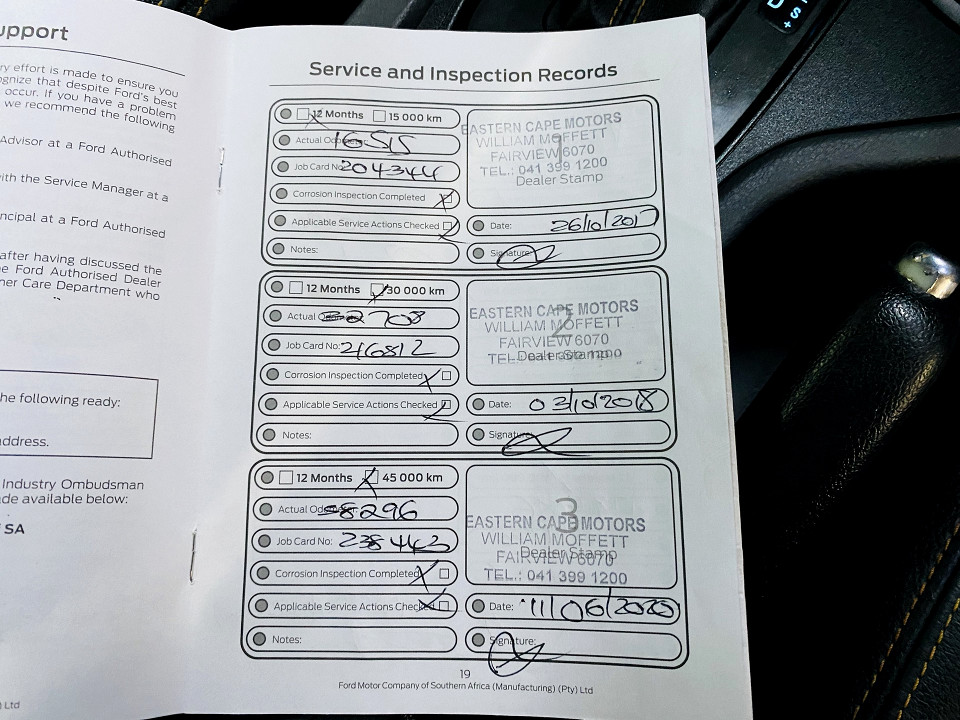 upport
ry effort is made to ensure you
gnize that despite Ford's best
occur. If you have a problem
we recommend the following
Advisor at a Ford Authorised
with the Service Manager at a
ncipal at a Ford Authorised
after having discussed the
e Ford Authorised Dealer
mer Care Department who
he following ready:
address.
Industry Ombudsman
de available below:
SA
) Ltd
Service and Inspection Records
12 Months 15 000 km
Actual Odometer: 16515
Job Card No: 204344
Corrosion Inspection Completed
Applicable Service Actions Checked
Notes:
1
EASTERN CAPE MOTORS
WILLIAM MOFFETT
FAIRVIEW 6070
TEL.: 041 399 1200
Dealer Stamp
Date: 26/10/2017
Signature:
12 Months 30 000 km
Actual 32708
Job Card No: 216812
Corrosion Inspection Completed
Applicable Service Actions Checked
Notes:
2
EASTERN CAPE MOTORS
WILLIAM MOFFETT
FAIRVIEW 6070
Dealer Stamp
Date: 03/10/2018
Signature:
12 Months 45 000 km
Actual 58296
Job Card No: 238443
Corrosion Inspection Completed
Applicable Service Actions Checked
Notes:
3
EASTERN CAPE MOTORS
WILLIAM MOFFETT
Dealer Stamp
FAIRVIEW 6070
TEL.: 041 399 1200
Date: 11/06/2020
Signature:
19
Ford Motor Company of Southern Africa (Manufacturing) (Pty) Ltd
D
S
+